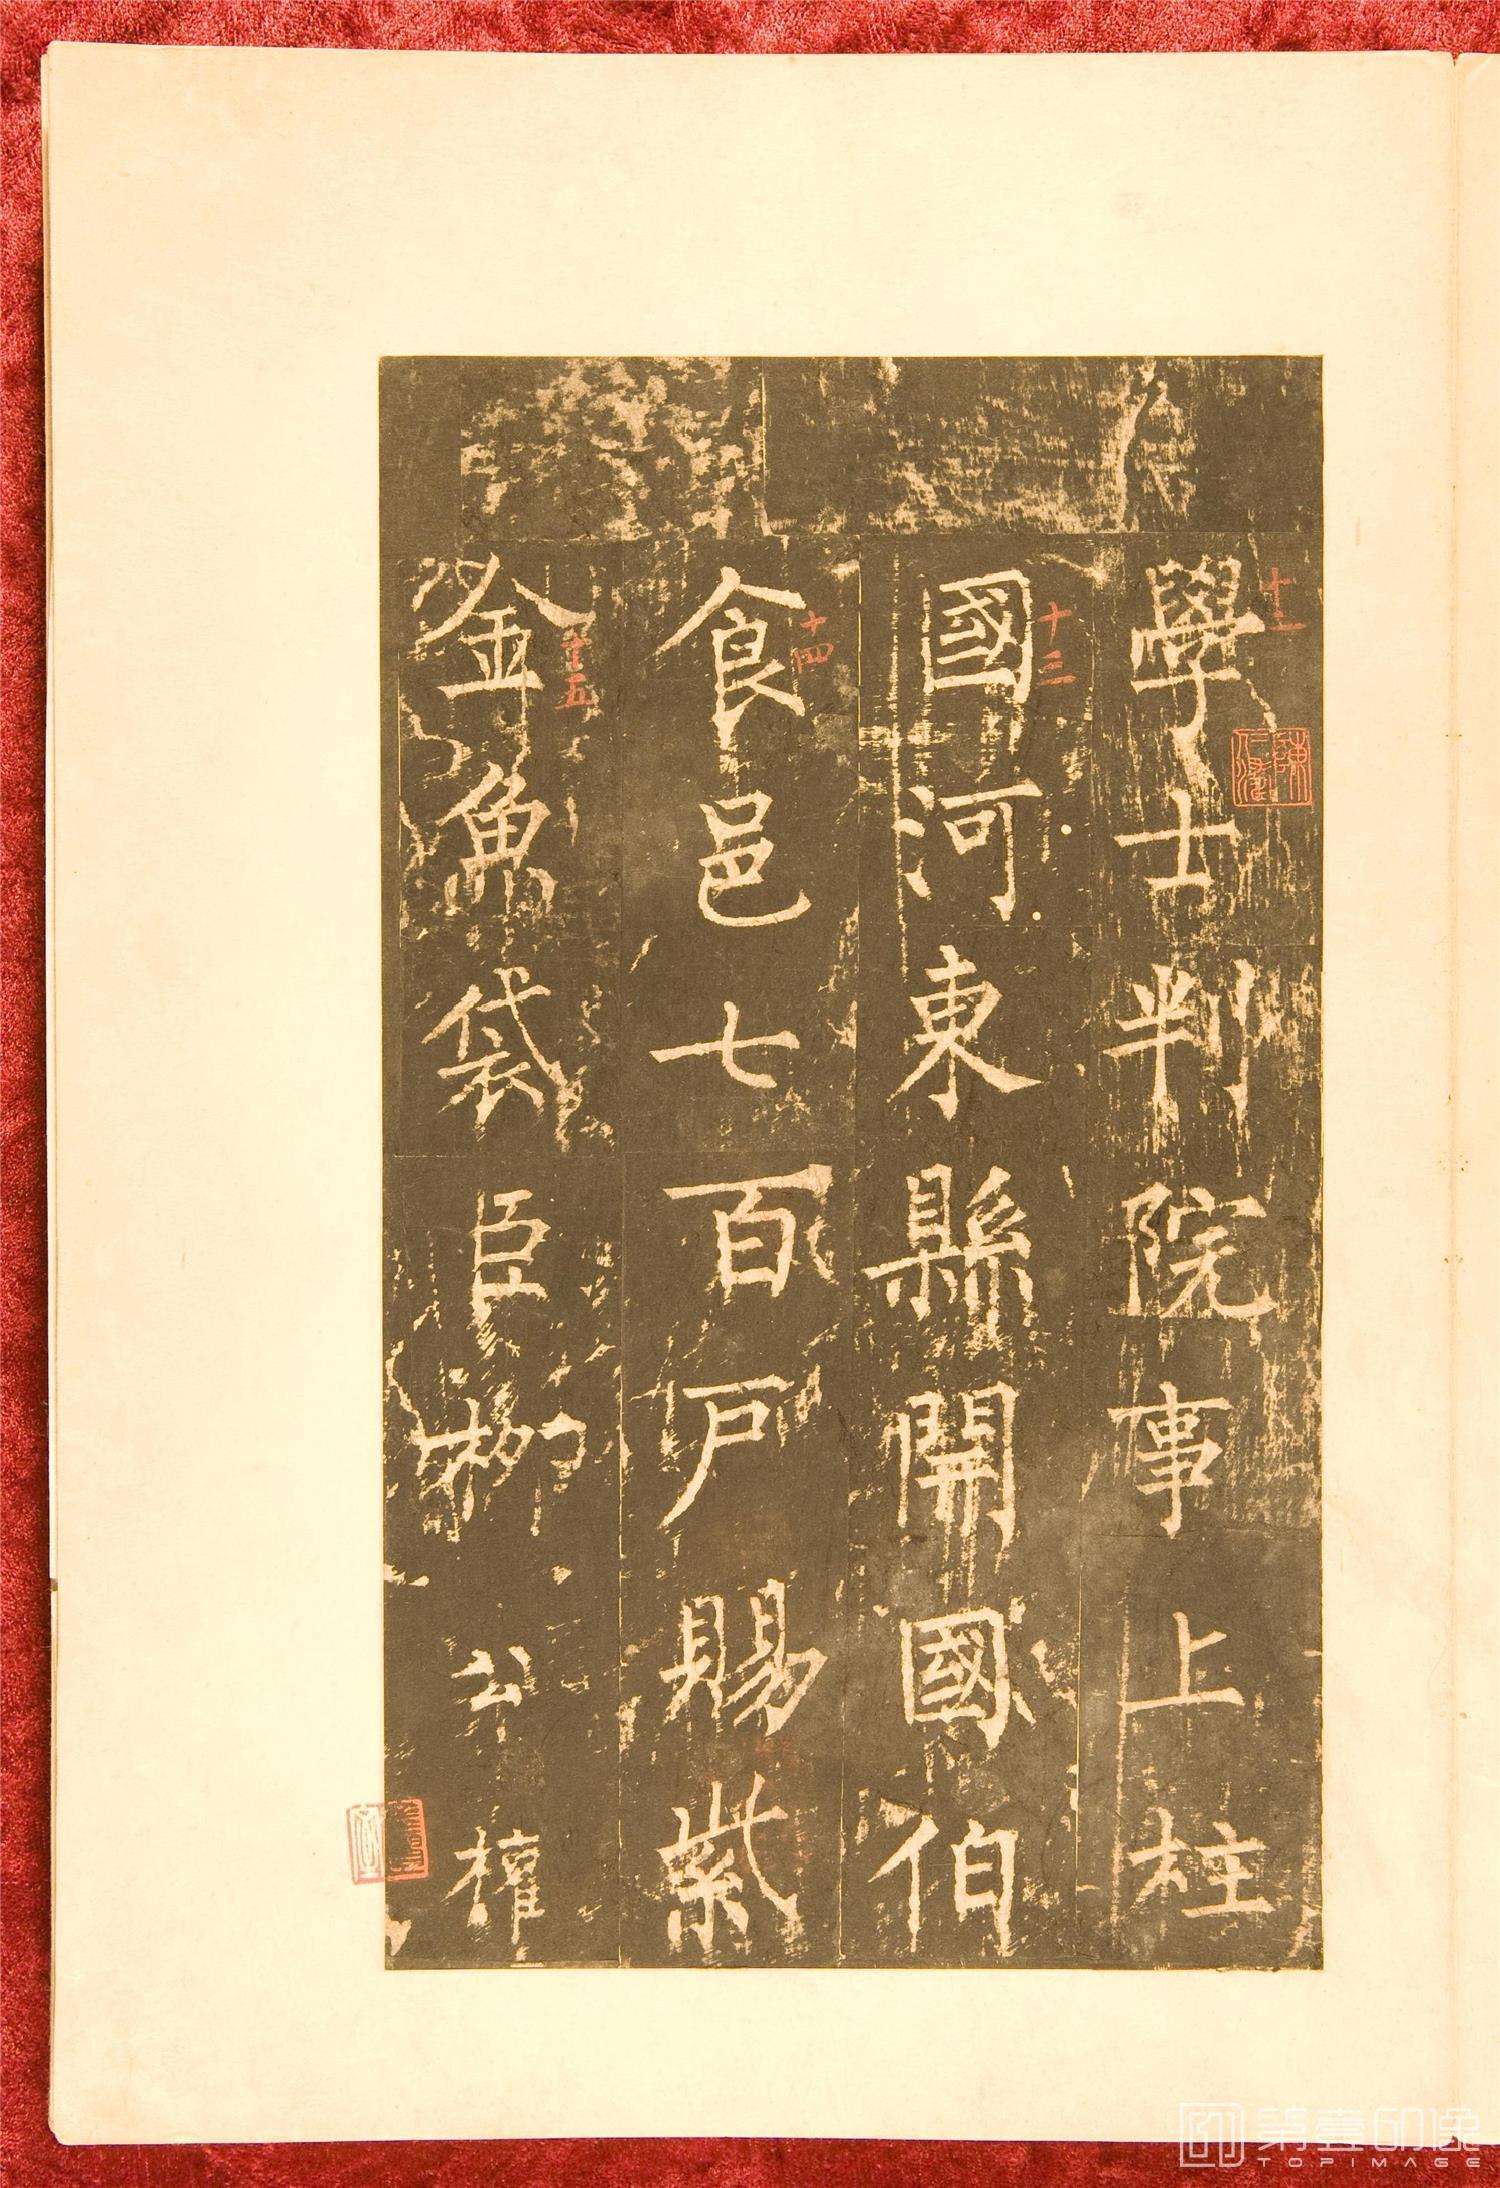 學士判院事上柱
國河東縣開國伯
食邑七百戶賜紫
金魚袋臣柳公權
十二
十三
十四
十五
第壹印像
TOPIMAGE